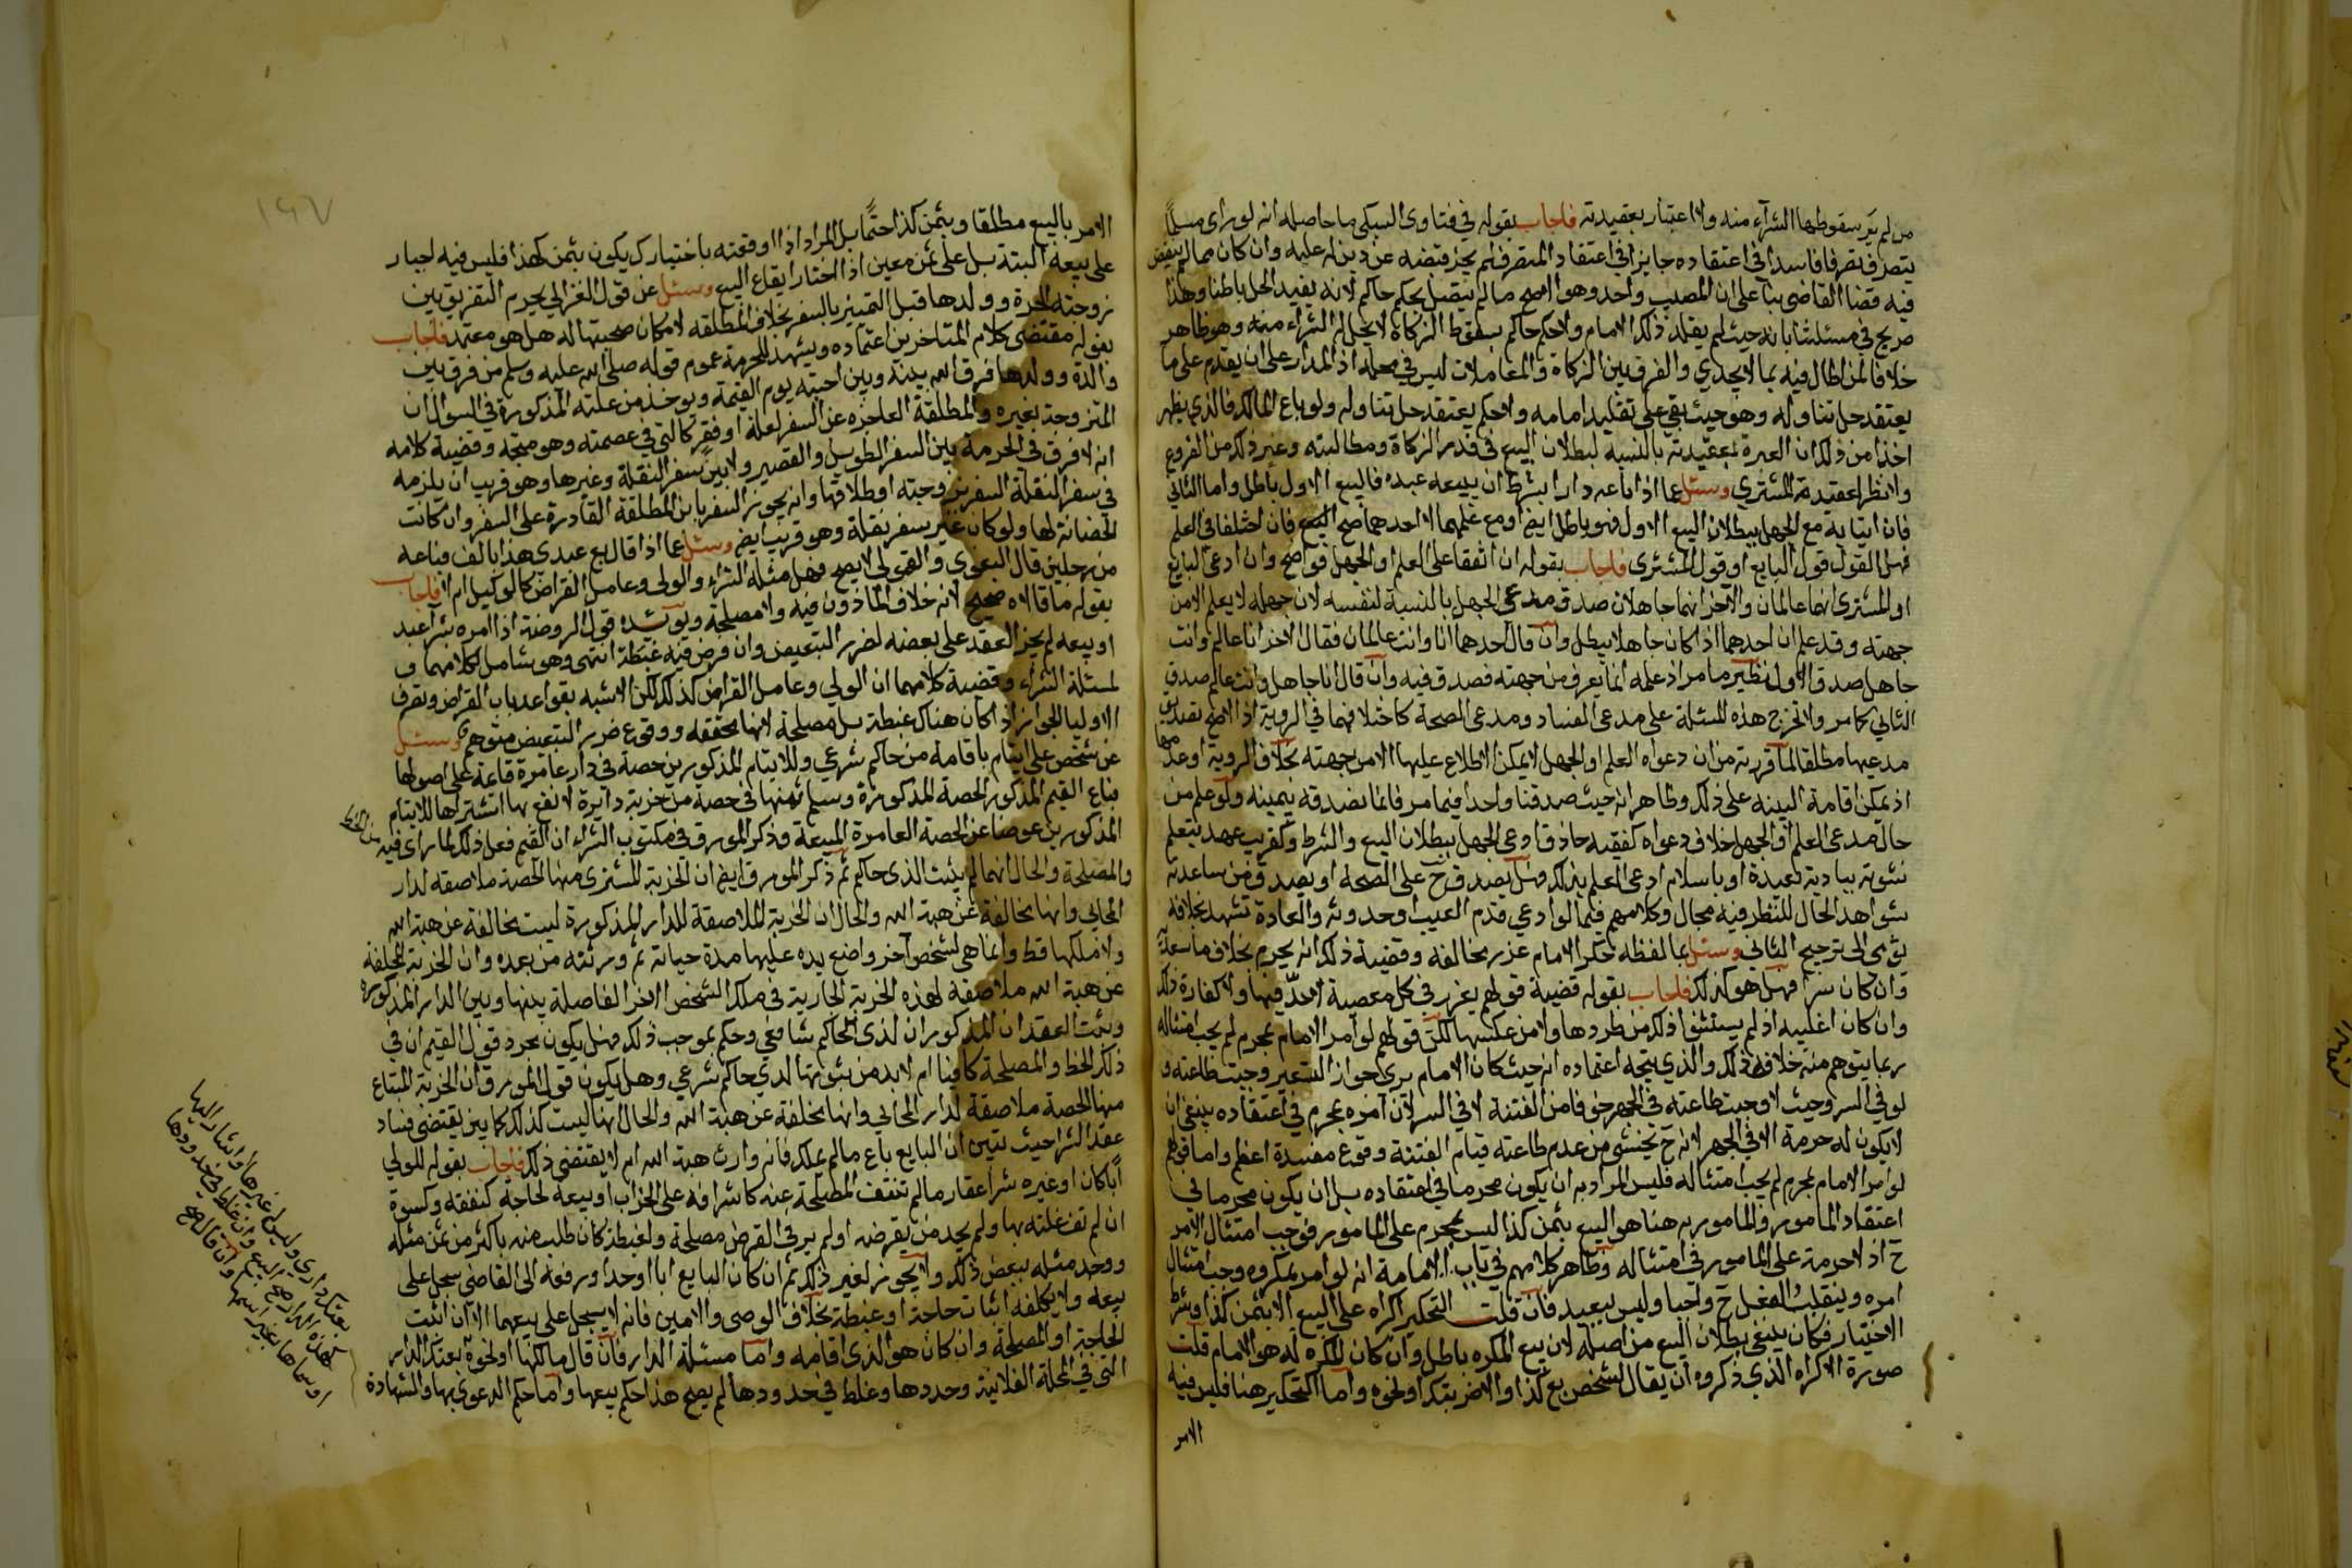 من لم ير سقوطها الشرآء منه ولا اعتبار بعقيدته فاجاب بقوله في فتاوى السبكي ما حاصله انه لو راى مسلما
يتصرف تصرفا فاسدا في اعتقاده جايزا في اعتقاد المتصرف لم يجز قبضه عن دين له عليه وان كان مما لم ينقض
فيه قضا القاضي بنا على ان المصيب واحد وهو الاصح ما لم يتصل بحكم حاكم لانه يفيد الحل باطنا وهذا
صريح في مسئلتنا بانه حيث لم يقلد ذلك الامام ولا حكم حاكم بسقوط الزكاة لا يحل له الشراء منه وهو ظاهر
خلافا لمن اطال فيه بما لا يجدي والفرق بين الزكاة والمعاملات ليس في محله اذ المدار على ان يقدم على ما
يعتقد حل تناوله وهو حيث بقي على تقليد امامه ولا حكم يعتقد حل تناوله ولو باع المالك فالذي يظهر
اخذا من ذلك ان العبرة بعقيدته بالنسبة لبطلان البيع في قدر الزكاة ومطالبته وغير ذلك من الفروع
ولا نظر لعقيدة المشتري وسئل عما اذا باعه دارا بشرط ان يبيعه عبده فالبيع الاول باطل واما الثاني
فان اتيا به مع الجهل ببطلان البيع الاول فهو باطل ايضا ومع علمهما لاحدهما صح البيع فان اختلفا في العلم
فهل القول قول البايع او قول المشتري فاجاب بقوله ان اتفقا على العلم او الجهل فواضح وان ادعى البايع
او المشترى انهما عالمان والآخر انهما جاهلان صدق مدعي الجهل بالنسبة لنفسه لان جهله لا يعلم الا من
جهته وقد علم ان احدهما اذا كان جاهلا يبطل وان قال احدهما انا وانت عالمان فقال الآخر انا عالم وانت
جاهل صدق الاول نظير ما مر اذ علمه انما يعرف من جهته فصدق فيه وان قال انا جاهل وانت عالم صدق
الثاني كما مر ولا تخرج هذه المسئلة على مدعي الفساد ومدعي الصحة كاختلافهما في الروية اذ الاصح تصديق
مدعيها مطلقا لما قررته من ان دعواه العلم او الجهل لا يمكن الاطلاع عليها الا من جهته بخلاف الروية وعدمها
اذ يمكن اقامة البينة على ذلك وظاهر انه حيث صدقنا واحدا فيما مر فانما نصدقه بيمينه ولو علم من
حال مدعي العلم او الجهل خلاف دعواه كفقيه حاذق ادعى الجهل ببطلان البيع والشرط وكقريب عهد بتعلم
نشوته ببادية بعيدة او باسلام ادعى العلم بذلك فهل يصدق ح على الصحة او يصدق من ساعدته
شواهد الحال للنظر فيه مجال وكلامهم فيما لو ادعي قدم العيب او حدوثه والعادة تشهد بخلافه
يومى الى ترجيح الثاني وسئل بما لفظه تحكر الامام عزر مخالفه وقضية ذلك انه يحرم بخلاف ما سعله
وان كان سرا فهل هو كذلك فاجاب بقوله قضية قولهم يعزر في كل معصية لا حد فيها ولا كفارة ذلك
وان كان اغلبيه اذ لم يستثنوا ذلك من طردها ولا من عكسها لكن قولهم لو امر الامام بمحرم لم يجب امتثاله
ربما يتوهم منه خلاف ذلك والذي يتجه اعتماده انه حيث كان الامام يرى جواز التسعير وجبت طاعته و
لو في السر وحيث لا وجبت طاعته في الجهر خوفا من الفتنة لا في السر لان امره بمحرم في اعتقاده ينبغي ان
لا يكون له حرمة الا في الجهر لانه ح يخشى من عدم طاعته قيام الفتنة ووقوع مفسدة اعظم واما قولهم
لو امر الامام بمحرم لم يجب امتثاله فليس المراد به ان يكون محرما في اعتقاده بل ان يكون محرما في
اعتقاد المامور والمامور به هنا هو البيع بثمن كذا ليس بمحرم على المامور فوجب امتثال الامر
ح اذ لا حرمة على المامور في امتثاله وظاهر كلامهم في باب الامامة انه لو امر بمكروه وجب امتثال
امره وينقلب الفعل ح واجبا وليس ببعيد فان قلت التحكير اكراه على البيع الا بثمن كذا وشرط
الاختيار فكان ينبغي بطلان البيع من اصله لان بيع المكره باطل وان كان المكره له هو الامام قلت
صورة الاكراه الذي ذكروه ان يقال لشخص بع كذا والا ضربتك او نحوه واما التحكير هنا فليس فيه
الامر
١٤٧
الامر بالبيع مطلقا وبثمن كذا حتما بل المراد اذا اوقعته باختيارك يكون بثمن كهذا فليس فيه اجبار
على بيعه البتة بل على ثمن معين اذا اختار ايقاع البيع وسئل عن قول الغزالي يحرم التفريق بين
زوجته الحرة وولدها قبل التمييز بالسفر بخلاف المطلقة لامكان صحبتها له هل هو معتمد فاجاب
بقوله مقتضى كلام المتاخرين اعتماده ويشهد للحرمة عموم قوله صلى الله عليه وسلم من فرق بين
والدة وولدها فرق الله بينه وبين احبته يوم القيمة ويوخذ من علته المذكورة في السوال ان
المتزوجة بغيره والمطلقة العاجزة عن السفر لعلة او فقر كالتي في عصمته وهو متجه وقضية كلامه
انه لا فرق في الحرمة بين السفر الطويل والقصير ولا بين سفر النقلة وغيرها وهو قريب ان يلزمه
في سفر النقلة السفر بزوجته او طلاقها وانه يجوز السفر بابن المطلقة القادرة على السفر وان كانت
الحضانة لها ولو كان غير سفر نقلة وهو قريب ايضا وسئل عما اذا قال بع عبدي هذا بالف فباعه
من رجلين قال البغوي والقمولي لا يصح فهل مثله الشراء والولي وعامل القراض كالوكيل ام لا فاجاب
بقوله ما قالاه صحيح لانه خلاف الماذون فيه ولا مصلحة ويويده قول الروضة اذا امره بشراء عبد
او بيعه لم يجز العقد على بعضه لضرر التبعيض وان فرض فيه غبطة انتهى وهو شامل لكلامهما و
لمسئلة الشراء وقضية كلامهما ان الولي وعامل القراض كذلك لكن الاشبه بقواعد باب القراض وتصرف
الاوليا الجواز اذا كان هناك غبطة بل مصلحة لانها محققة ووقوع ضرر التبعيض متوهم وسئل
عن شخص على ايتام باقامة من حاكم شرعي وللايتام المذكورين حصة في دار عامرة قاعة على اصولها
فباع القيم المذكور الحصة المذكورة وسلم ثمنها في حصة من خربة دايرة لا نفع بها اشتراها للايتام
المذكورين عوضا عن الحصة العامرة المبيعة وذكر المورق في مكتوب الشراء ان القيم فعل ذلك لما راى فيه من الحظ
والمصلحة والحال انهما لم يثبت لذى حاكم ثم ذكر المورق ايضا ان الخربة المشترى منها الحصة ملاصقة لدار
المحاني وانها مخالفة عن هبة الله والحال ان الخربة الملاصقة للدار المذكورة ليست مخالفة عن هبة الله
ولا ملكها قط وانما هي لشخص آخر واضع يده عليها مدة حياته ثم ورثته من بعده وان الخربة المخلفة
عن هبة الله ملاصقة لهذه الخربة الجارية في ملك الشخص الآخر الفاصلة بينها وبين الدار المذكورة
وثبت العقد ان المذكوران لذى الحاكم شافعي وحكم بموجب ذلك فهل يكون مجرد قول القيم ان في
ذلك الحظ والمصلحة كافيا ام لا بد من ثبوتها لدي حاكم شرعي وهل يكون قول المورق ان الخربة المبتاع
منها الحصة ملاصقة لدار المحاني وانها مخلفة عن هبة الله والحال انها ليست كذلك كما يبن يقتضى فساد
عقد الشراء حيث تبين ان البايع باع ما لم يملك فانه وارث هبة الله ام لا يقتضى ذلك فاجاب بقوله للولي
أبا كان او غيره شرا عقار ما لم تنتف المصلحة عنه كاشرافه على الخراب او بيعه لحاجة كنفقة وكسوة
ان لم تف غلته بها ولم يجد من يقرضه او لم ير في القرض مصلحة ولغبطة كان طلب منه باكثر من ثمن مثله
ووجد مثله ببعض ذلك ولا يجوز لغير ذلك ثم ان كان البايع ابا او جدا ورفعه الى القاضي سجل على
بيعه ولا يكلفه اثبات حاجة او غبطة بخلاف الوصي والامين فانه لا يسجل على بيعهما الا ان اثبت
الحاجة او المصلحة وان كان هو الذى اقامه واما مسئلة الدار فان قال مالكها او نحوه بعتك الدار
التي في المحلة الفلانية وحددها وغلط في حدودها لم يصح هذا حكم بيعها واما حكم الدعوى بها والشهادة
بعتك داري وليس له غيرها او اشار اليها
كهذه الدار صح البيع وان غلط في حدودها
او سماها بغير اسمها وان قال صح